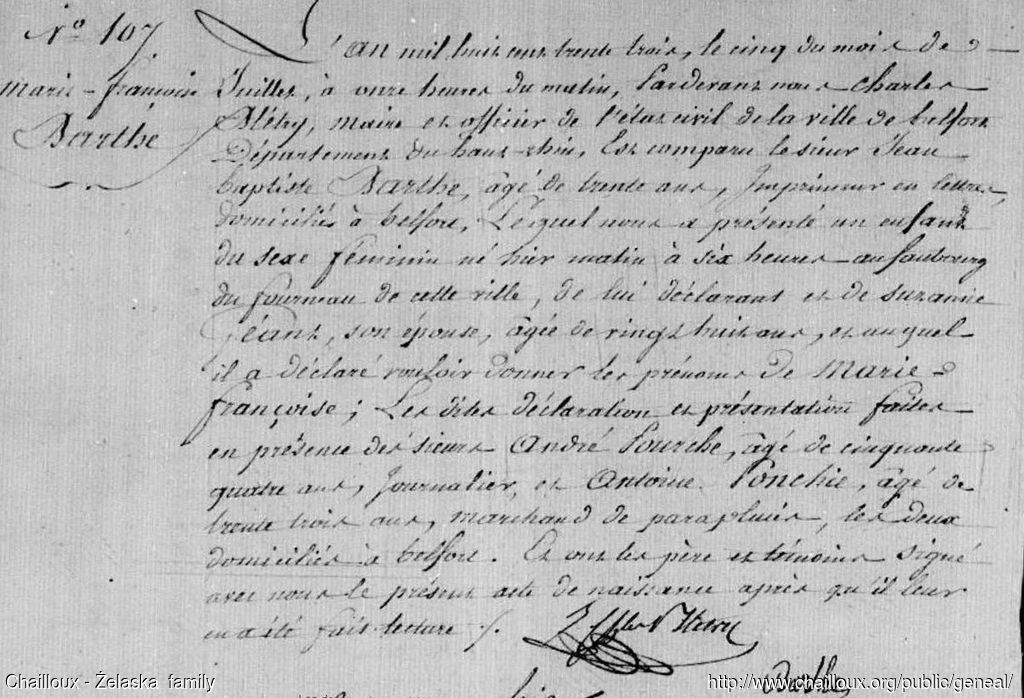 N.° 107.
Marie-françoise
Barthe
L'an mil huit cent trente trois, le cinq du mois de
Juillet, à onze heures du matin, Pardevant nous charles
Blétry, maire et officier de l'état civil de la ville de belfort
Département du haut-rhin, Est comparu le sieur Jean
baptiste Barthe, âgé de trente ans, Imprimeur en lettres,
domiciliés à belfort, Lequel nous a présenté un enfant
du sexe féminin né hier matin à six heures au faubourg
du fourneau de cette ville, de lui déclarant et de suzanne
Géant, son épouse, âgée de vingt huit ans, et auquel
il a déclaré vouloir donner les prénoms de Marie-
françoise; Les dites déclaration et présentation faites
en présence des sieurs André Pourche, âgé de cinquante
quatre ans, Journalier, et Antoine Ponchie, âgé de
trente trois ans, marchand de parapluies, les deux
domiciliés à belfort. Et ont les père et témoins signé
avec nous le présent acte de naissance après qu'il leur
en a été fait lecture ./.
Barthe
Chailloux - Żelaska family
http://www.chailloux.org/public/geneal/